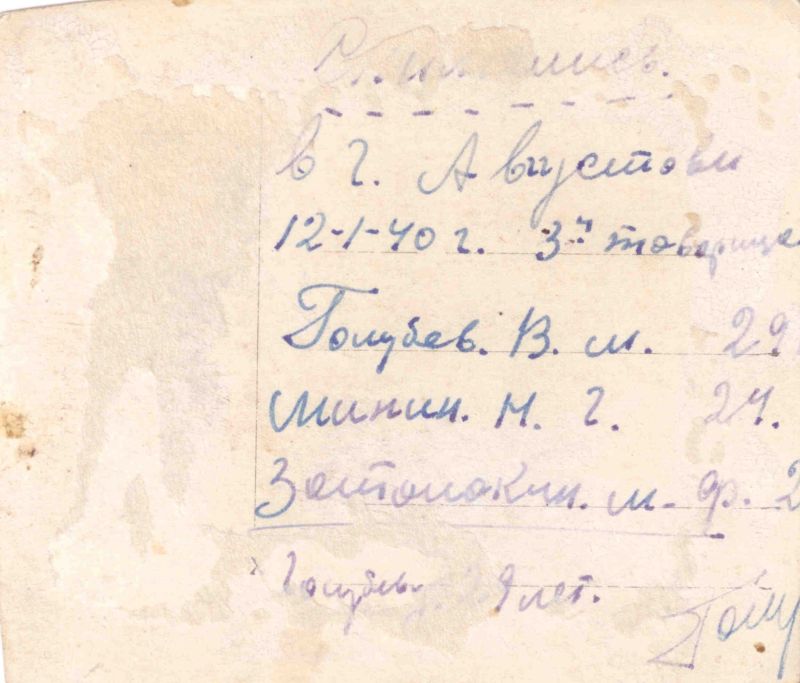 в г. Августови
12-1-40 г. 3й товарище
Голубев. В. м. 29
Минин. Н. Г. 24.
м. ф. 2
Голубеву. 29 лет.
Голу